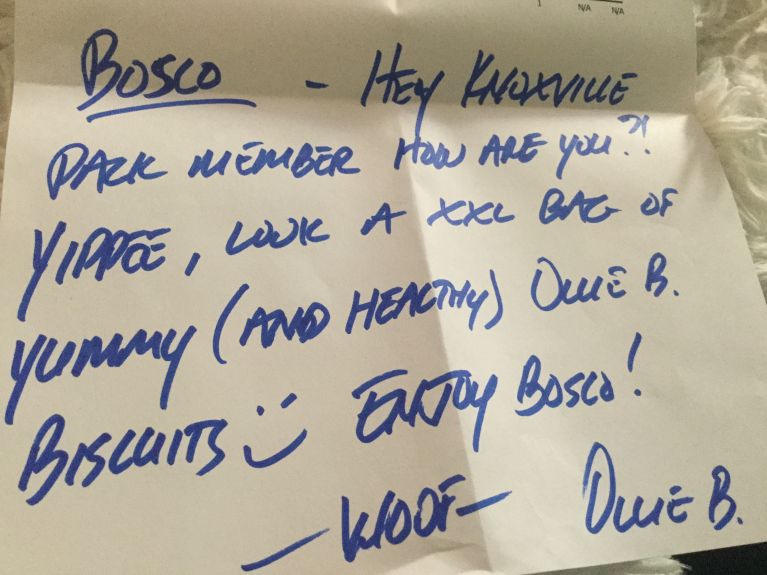 1 N/A N/A
BOSCO - HEY KNOXVILLE
PACK MEMBER HOW ARE YOU?!
YIPPEE, LOOK A XXL BAG OF
YUMMY (AND HEALTHY) OLLIE B.
BISCUITS :) ENJOY BOSCO!
- WOOF - OLLIE B.